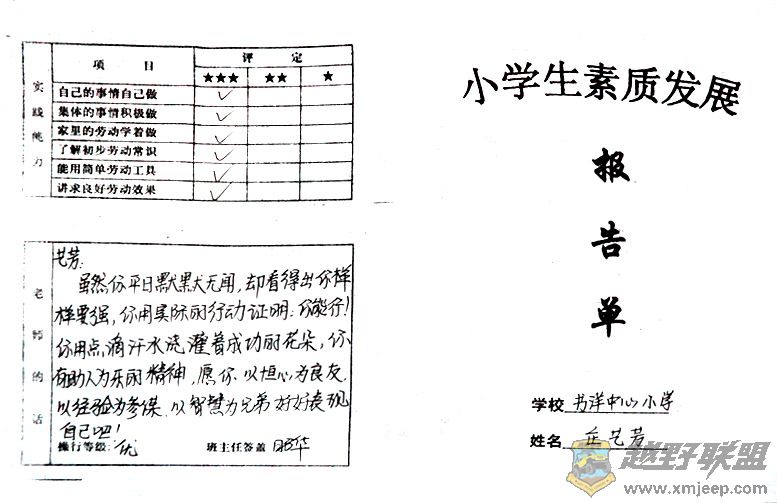 项 目
评 定
★★★ ★★ ★
实践能力
自己的事情自己做
集体的事情积极做
家里的劳动学着做
了解初步劳动常识
能用简单劳动工具
讲求良好劳动效果
老师的话
艺芳:
虽然你平日默默无闻,却看得出你样
样要强,你用实际的行动证明:你能行!
你用点滴汗水浇灌着成功的花朵,你
有助人为乐的精神,愿你以恒心为良友,
以经验为参谋,以智慧为兄弟好好表现
自己吧!
操行等级: 优 班主任签盖
小学生素质发展
报
告
单
学校 书洋中心小学
姓名 艺芳
越野联盟
www.xmjeep.com